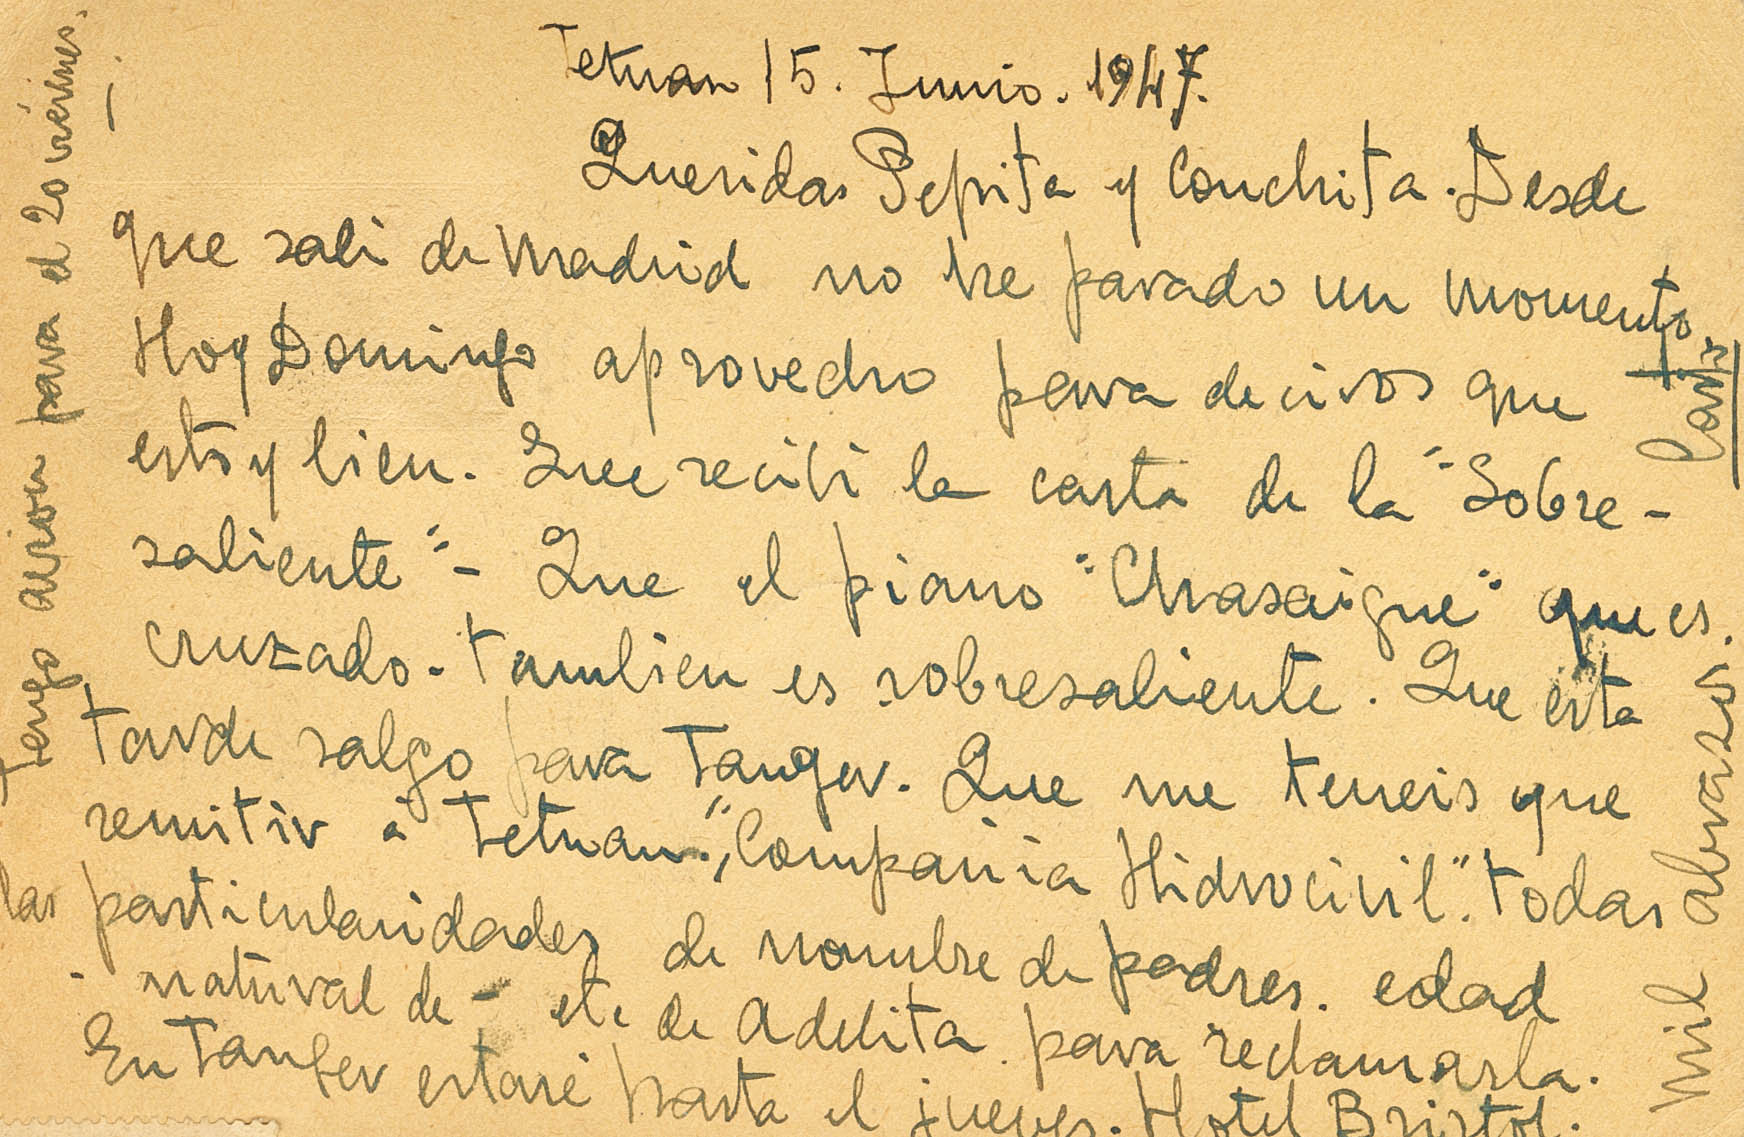 Tetuan 15. Junio. 1947.
Queridas Pepita y Conchita. Desde
que sali de Madrid no he parado un momento.
Hoy Domingo aprovecho para deciros que
estoy bien. Que recibi la carta de la "Sobre-
saliente" - Que el piano "Chasaigne" que es.
cruzado. tambien es sobresaliente. Que esta
tarde salgo para Tanger. Que me teneis que
remitir a Tetuan. "Compañia Hidrocivil". todas
las particularidades de nombre de padres. edad
- natural de - etc de Adelita para reclamarla.
En Tanger estaré hasta el jueves. Hotel Bristol.
Tengo avion para el 20 viernes.
Mil abrazos.